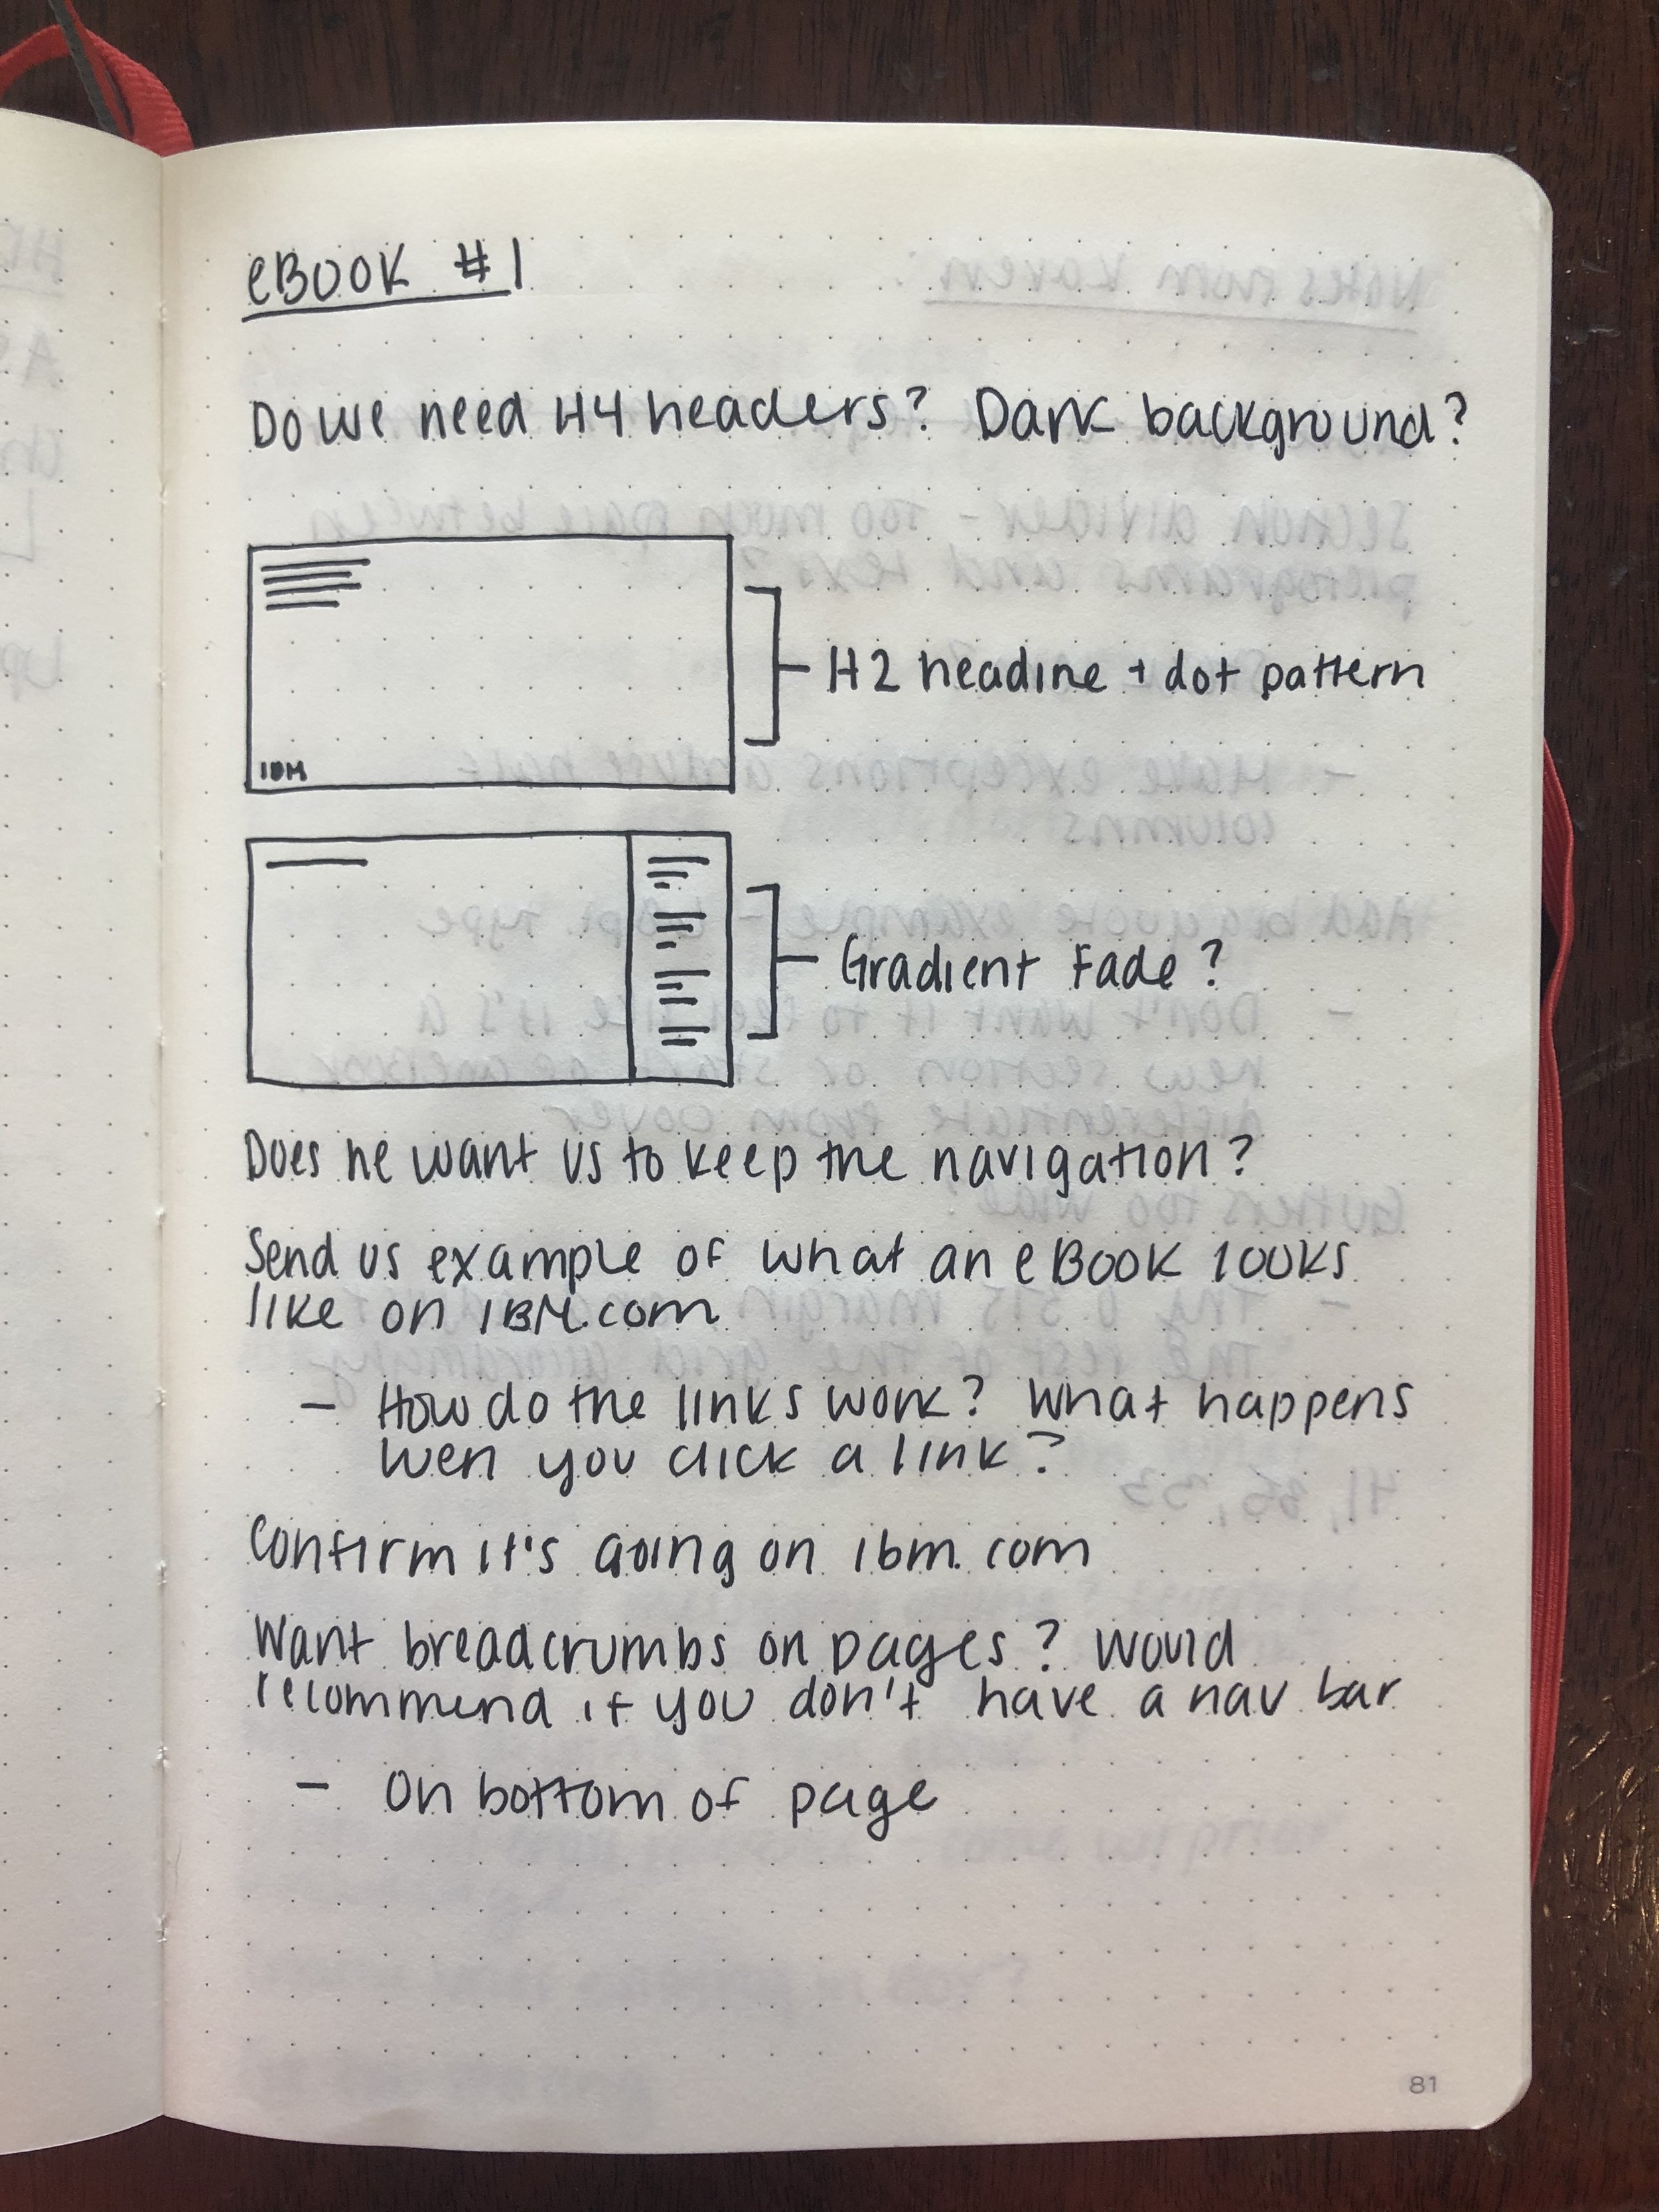 eBOOK #1
Do we need H4 headers? Dark background?
IBM
H2 headine + dot pattern
Gradient Fade?
Does he want us to keep the navigation?
Send us example of what an eBOOK looks
like on IBM.com
- How do the links work? What happens
wen you click a link?
Confirm it's going on ibm.com
Want breadcrumbs on pages? Would
recommend if you don't have a nav bar
- On bottom of page
81